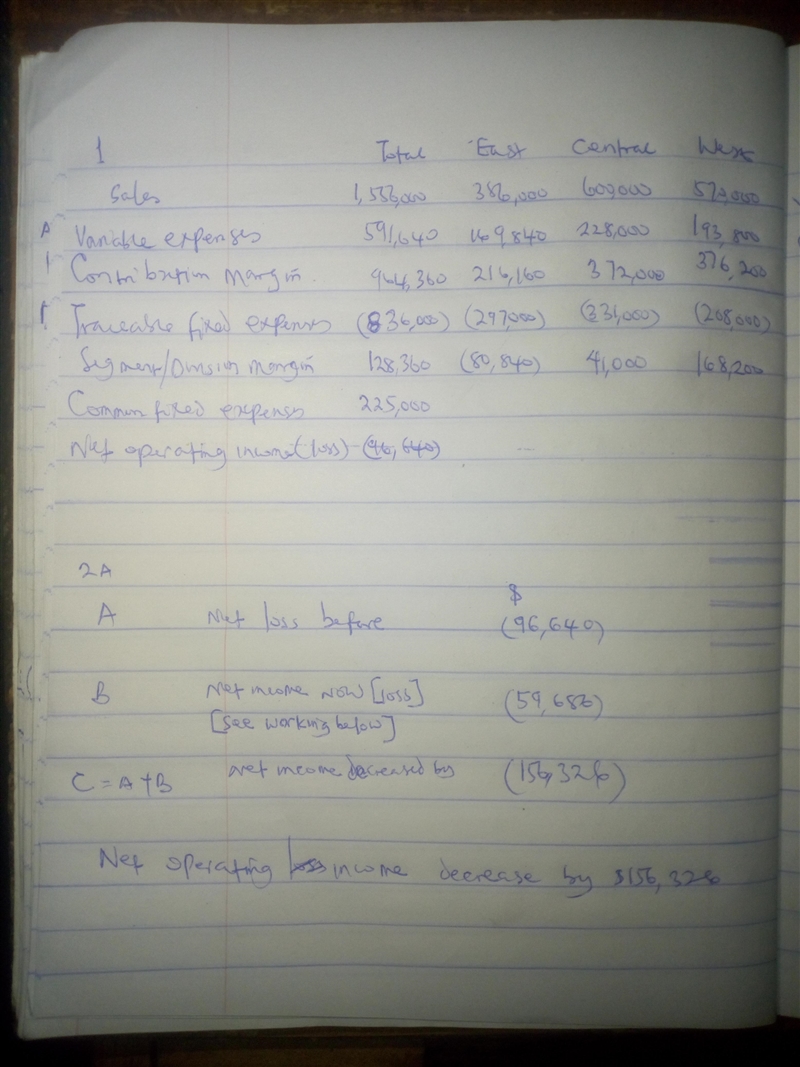 1 Total East Central West
Sales 1,556,000 386,000 600,000 570,000
A Variable expenses 591,640 169,840 228,000 193,800
Contribution Margin 964,360 216,160 372,000 376,200
Traceable fixed expenses (836,000) (297,000) (331,000) (208,000)
Segment/Division Margin 128,360 (80,840) 41,000 168,200
Common fixed expenses 225,000
Net operating income (loss) (96,640)
2A
$
A Net loss before (96,640)
B Net income now [loss] (59,686)
[see working below]
C = A+B Net income decreased by (156,326)
Net operating income decrease by $156,326